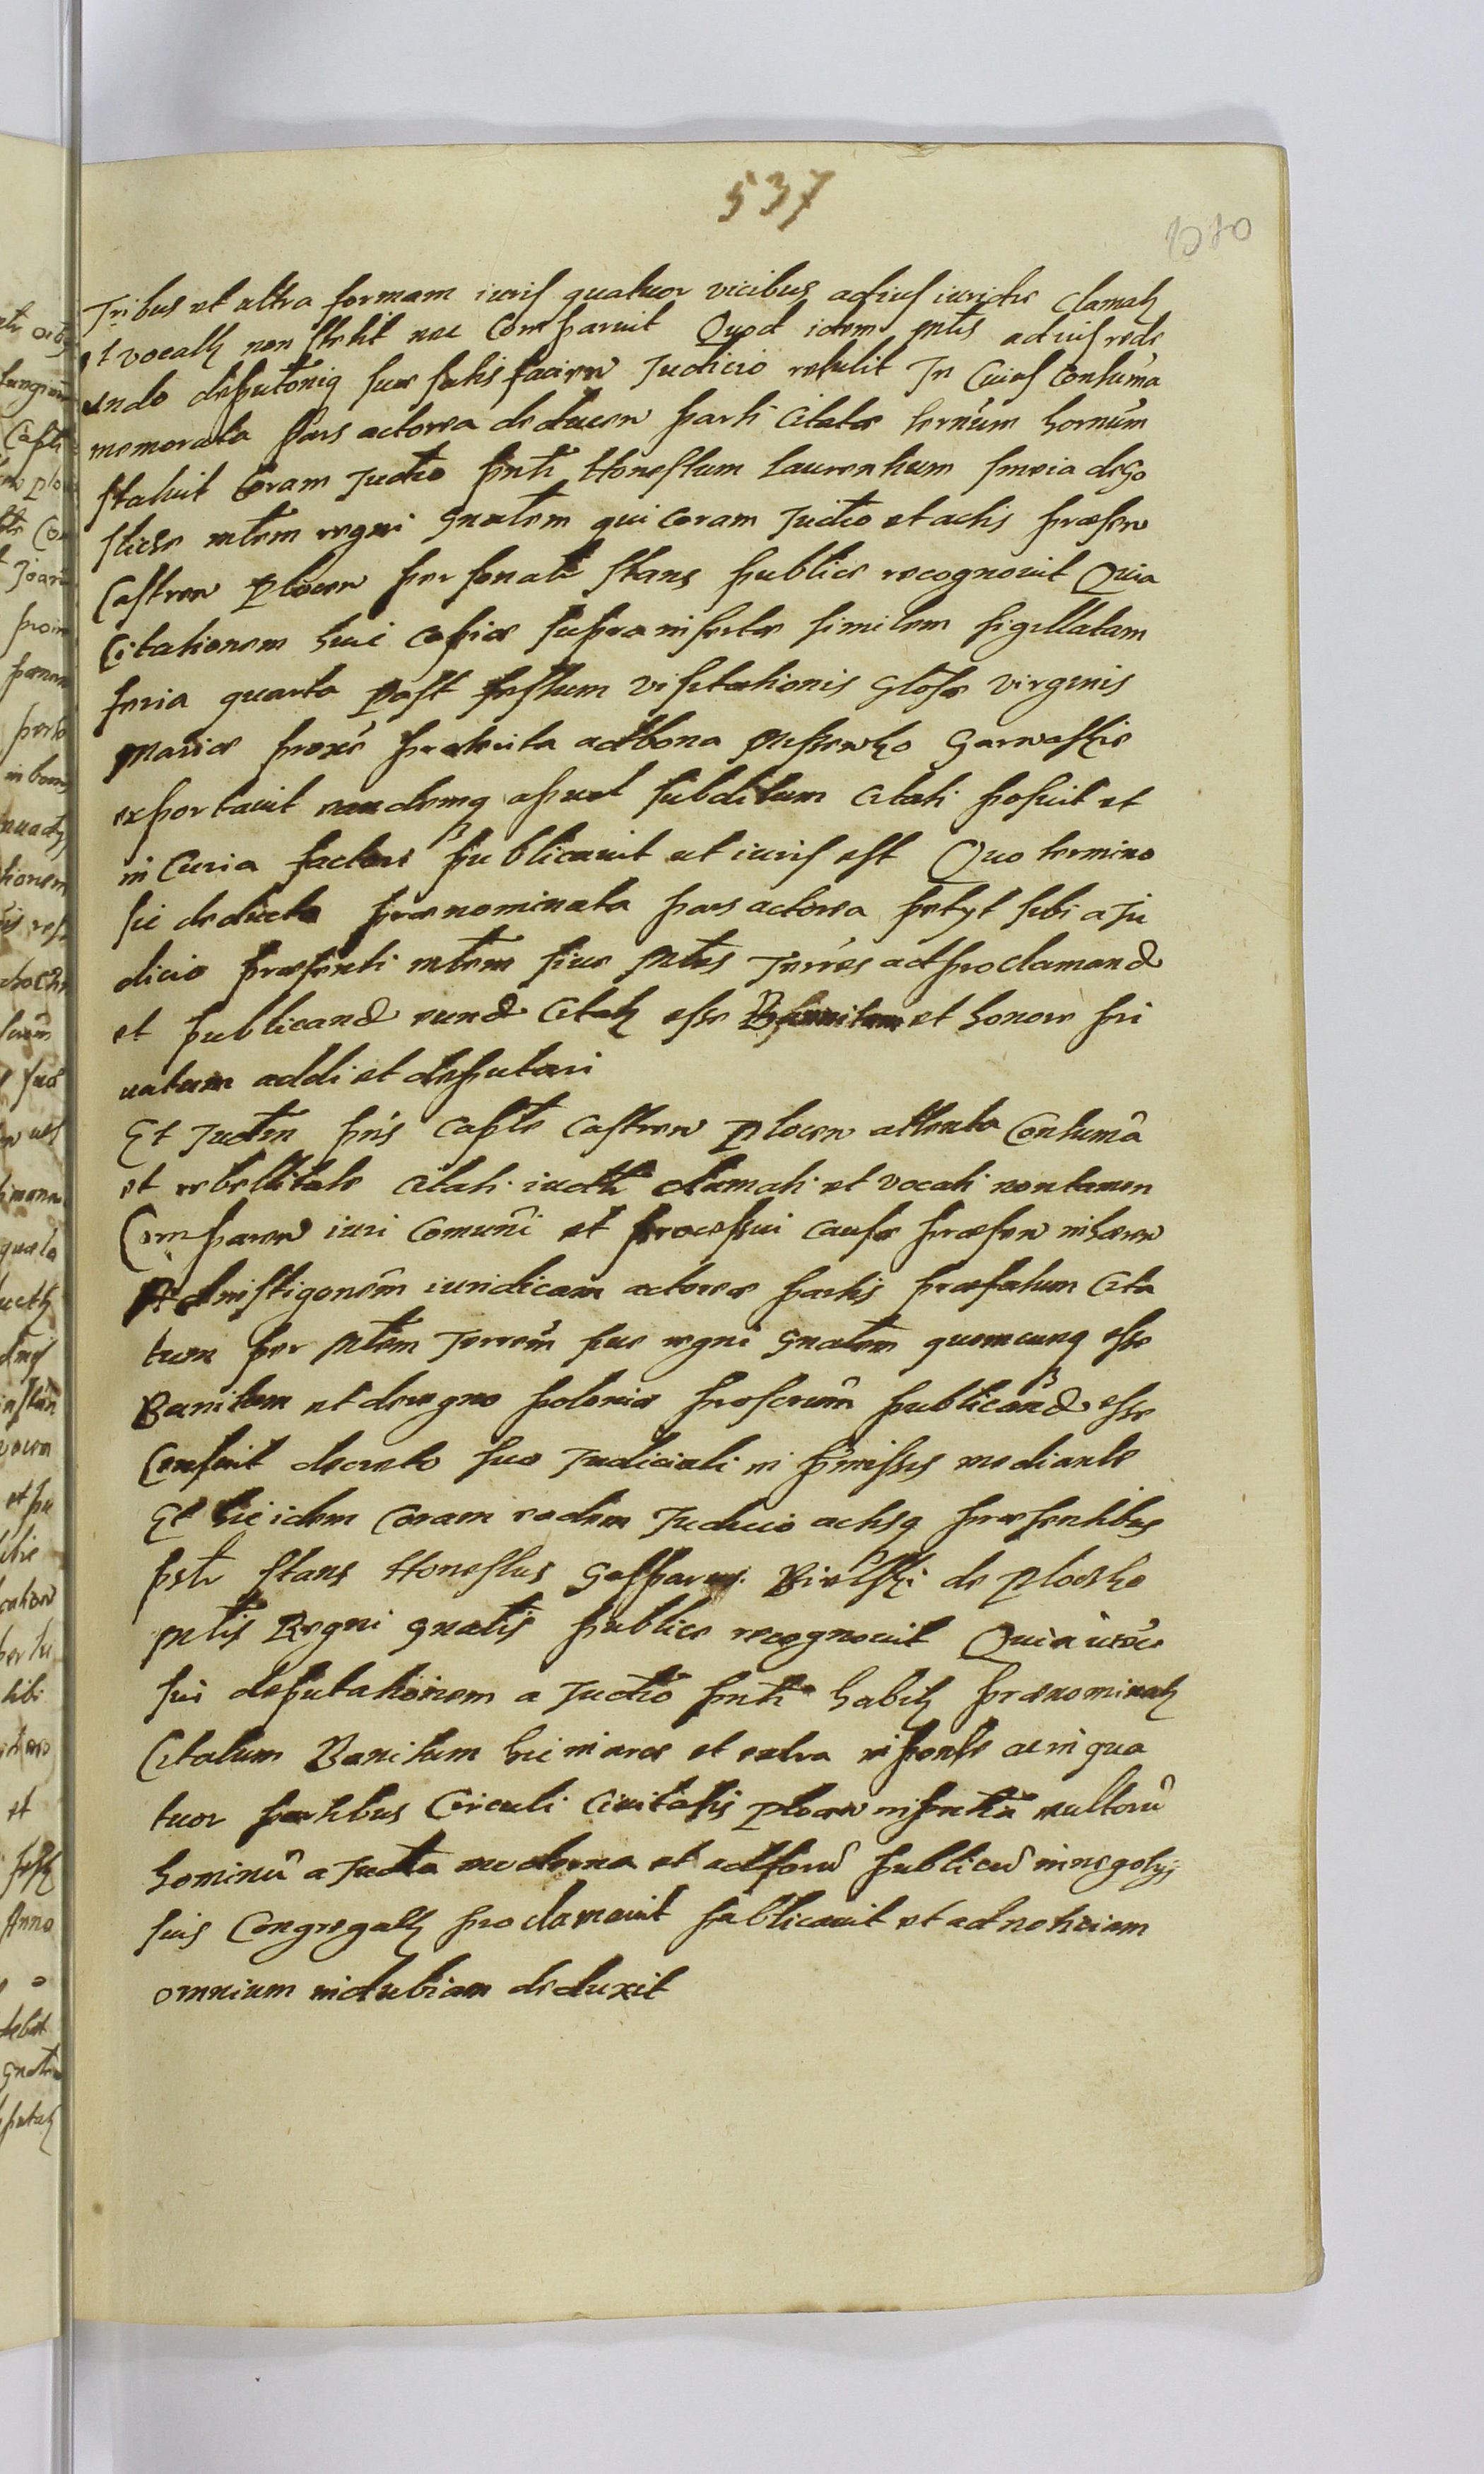 537
Tribus et ultra formam iuris quatuor vicibus ad ius iuridice clamatus
et vocatus non stetit nec Comparuit Quod idem mtlis ad ius rede
undo deputonique suae satis facien Judicio retulit In Cuius Contuma
memorata Pars actorea deducen parti Citatae ternum hornum
statuit Coram Judtio pnti Honestum Laurentium de Go
mtlem regni Gnalem qui Coram Judtio et actis praesen
Castren Plocen personalr stans publice recognovit Quia
Citationem huic copiae supra insertae similem sigillatam
feria quarta post festum visitationis Glosae virginis
Mariae proxe praeterita ad bona Garwaskie
exportavit eandemque apud subditum Citati posuit et
in Curia factore publicavit ut iuris est Quo termino
sic deducto praenominata pars actorea petyt sibi a Ju
dicio praesenti mtlem sive mtles Terrēs ad proclamand
et publicand eund Citatum esse Bannitum et honore pri
vatum addi et deputari
Et Judm pns Captle Castren Plocen attenta Contuma
et rebellitate Citati iudtr clamati et vocati non tamen
Comparen iuri Comuni et processui causae praesen inhaeren
Ad instigonem iuridicam actoreae partis praefatum Cita
tum per mtlem Terrem sive regni Gnalem quemcunque esse
Banitum et de regno poloniae proscrum publicand esse
Censuit decreto suo Judiciali in pmissis mediante
Et hic idem Coram eodem Judicio actisque praesentibus
pslr stans Honestus Gasparus Bielski de Plocko
mtlis Regni gnalis publice recognovit Quia
sui deputationem a Judtio pnti habitam praenominatum
Citatum Banitum hic in arce et extra in ponte ac in qua
tuor partibus Circuli Civitatis Plocen in pntia multoru
hominu a Judta moderna et ad foru publicu in negotys
suis Congregatis proclamavit publicavit et ad notitiam
omnium indubiam deduxit